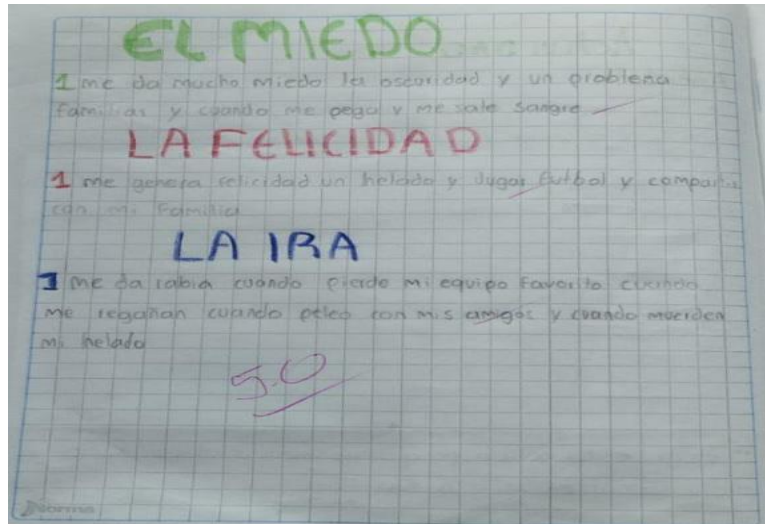 EL MIEDO
1 me da mucho miedo la oscuridad y un problema
familias y cuando me pego y me sale sangre
LA FELICIDAD
1 me genera felicidad un helado y jugar futbol y compartir
con mi Familia
LA IRA
1 me da rabia cuando pierde mi equipo favorito cuando
me regañan cuando peleo con mis amigos y cuando muerden
mi helado
5.0